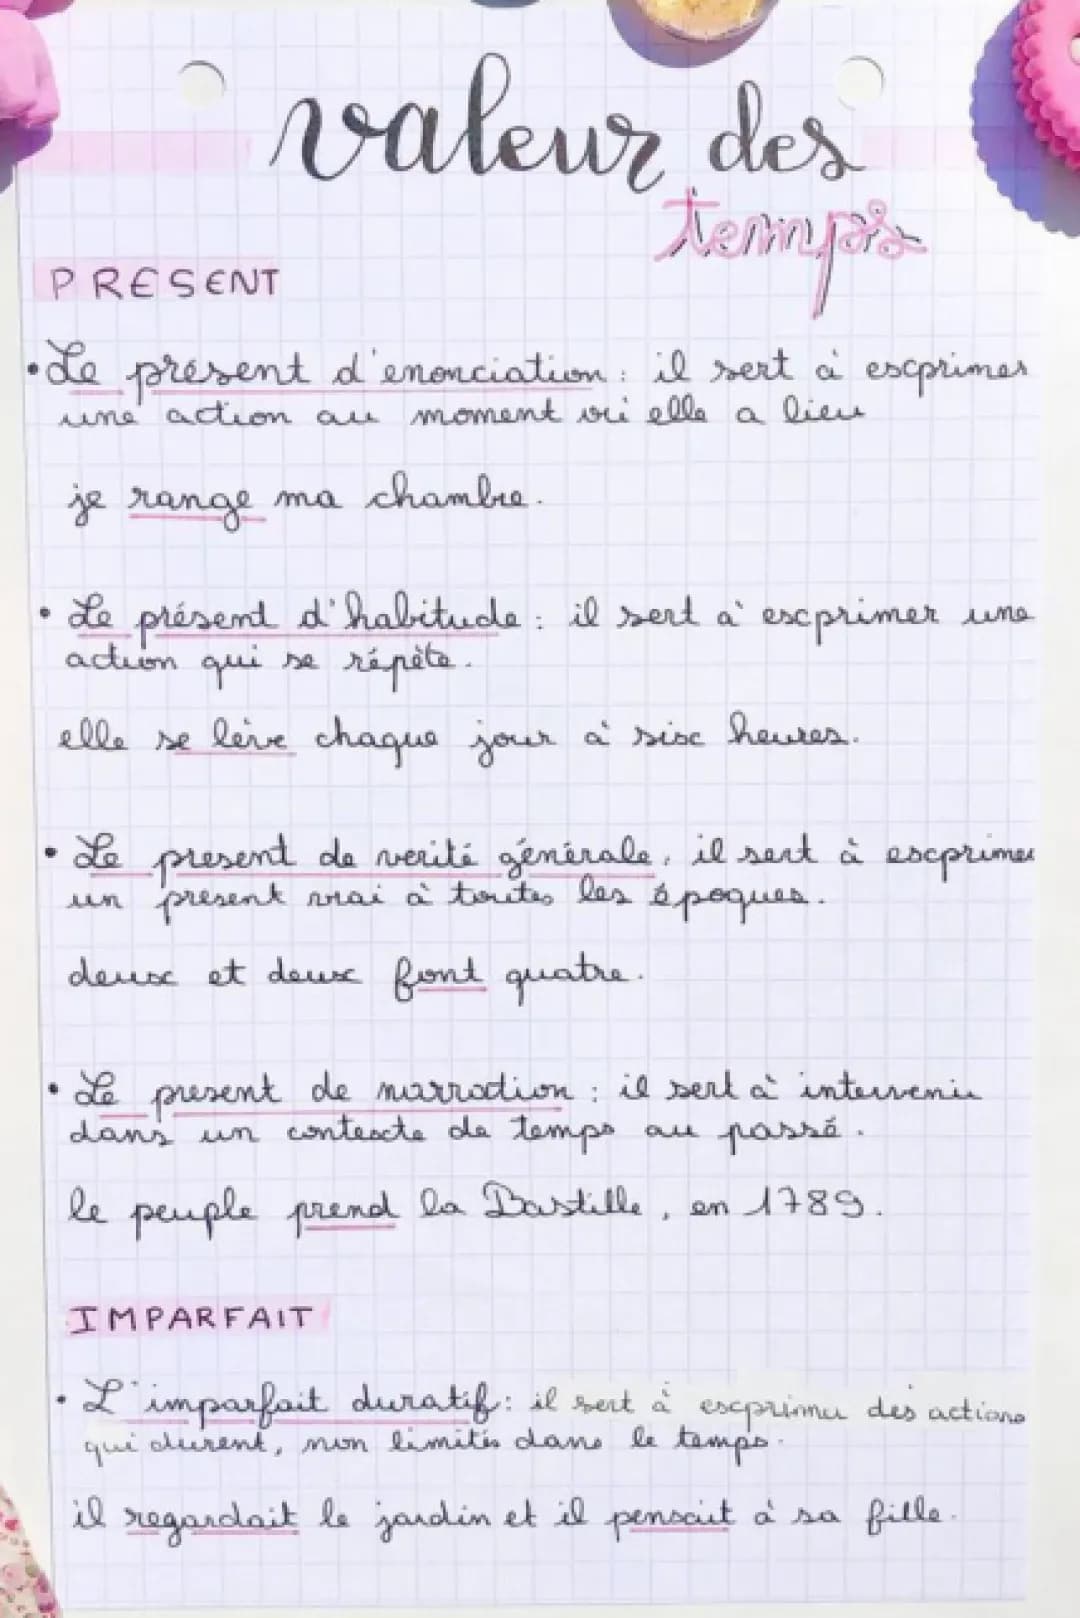 valeur des
temps
PRESENT
• Le présent d'enonciation : il sert à exprimer
une action au moment où elle a lieu
je range ma chambre.
• Le présent d'habitude : il sert à exprimer une
action qui se répète.
elle se lève chaque jour à six heures.
• Le present de verité générale, il sert à exprimer
un présent vrai à toutes les époques.
deux et deux font quatre.
• Le present de narration : il sert à intervenir
dans un contexte de temps au passé.
le peuple prend la Bastille, en 1789.
IMPARFAIT
• L'imparfait duratif : il sert à exprimer des actions
qui durent, non limités dans le temps.
il regardait le jardin et il pensait à sa fille.